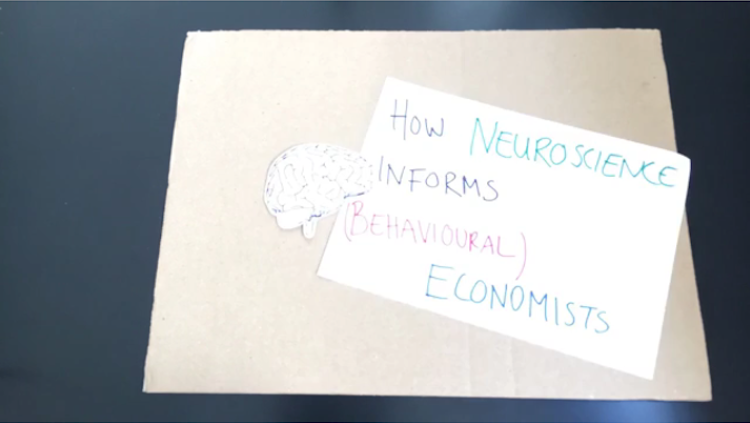 HOW NEUROSCIENCE
INFORMS
(BEHAVIOURAL)
ECONOMISTS